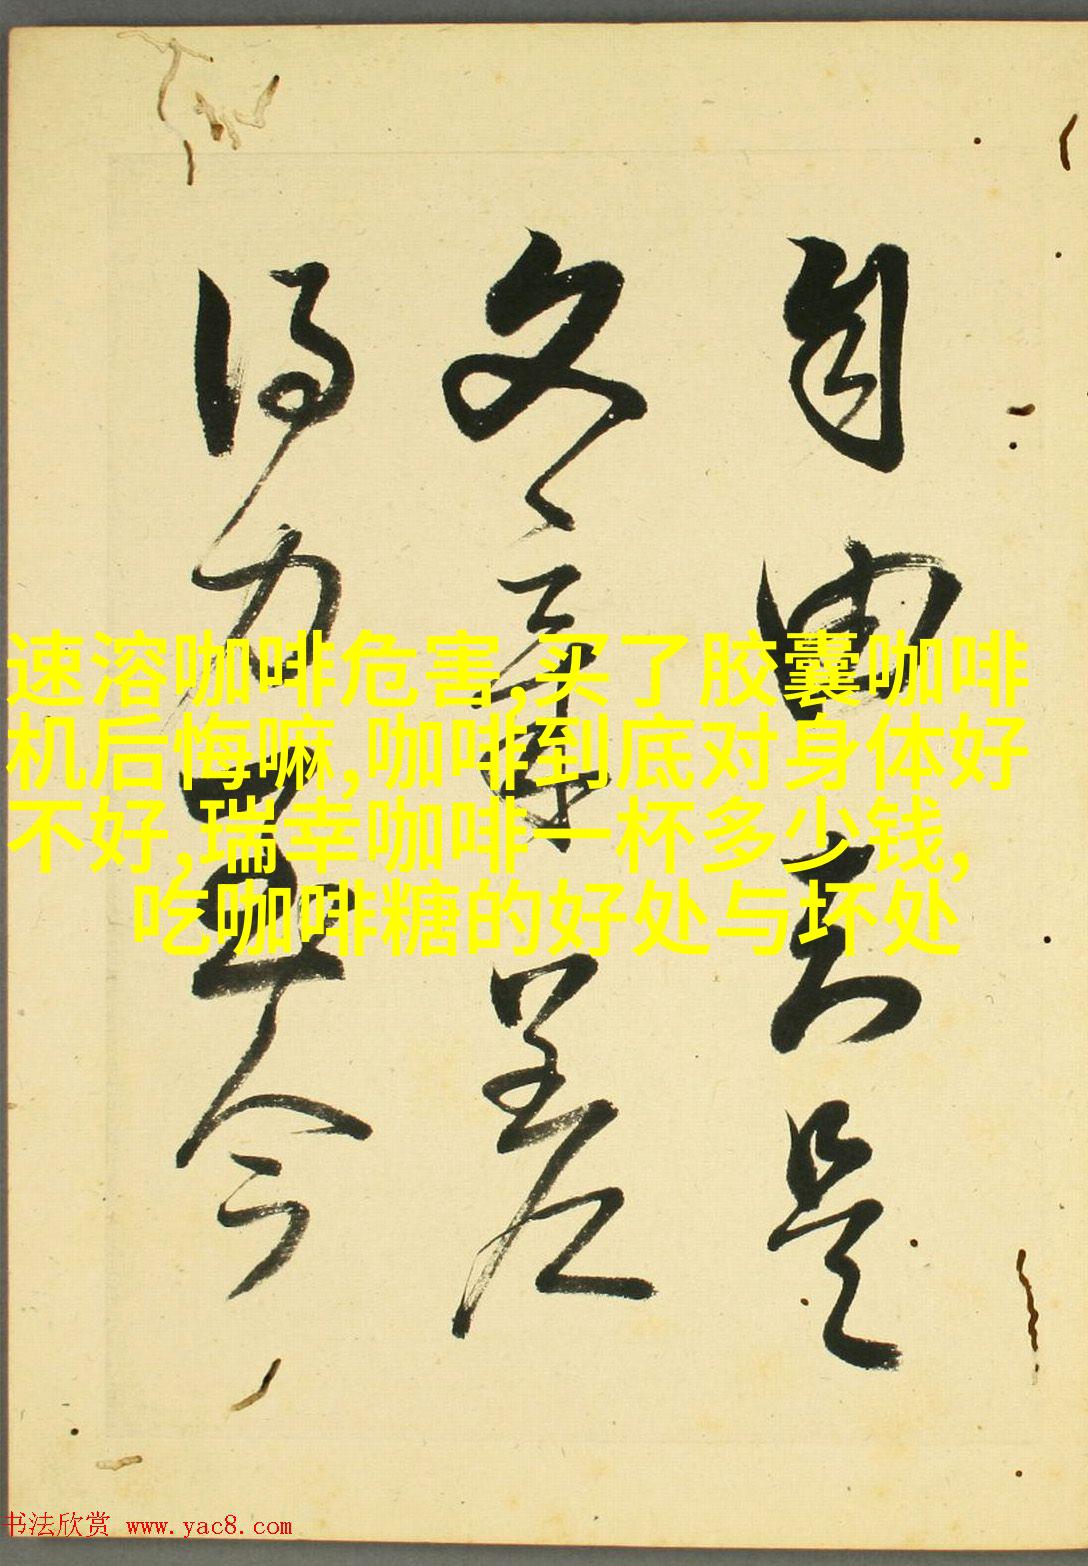 速溶咖啡危害,买了胶囊咖啡
机后悔嘛,咖啡到底对身体好
不好,瑞幸咖啡一杯多少钱,
吃咖啡糖的好处与坏处
自由是
文章差
得力今
书法欣赏 www.yac8.com